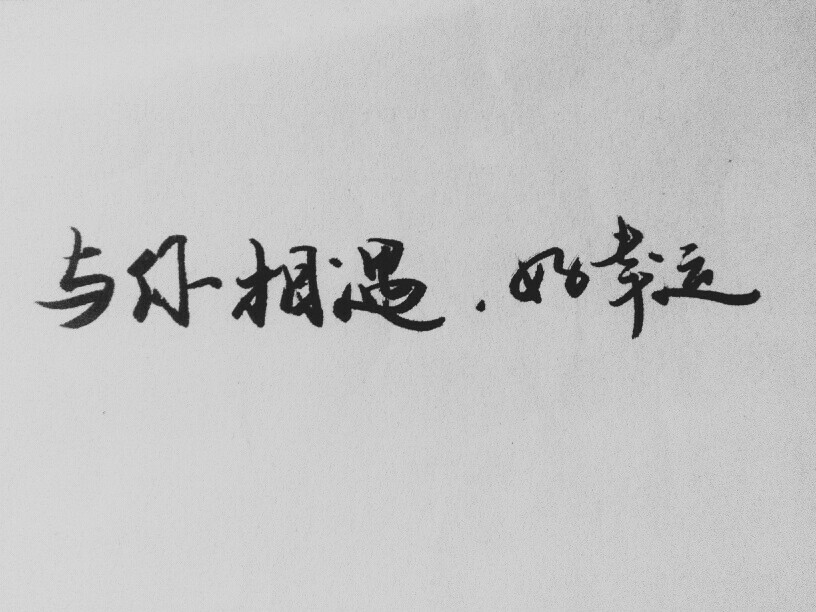 与你相遇.好幸运